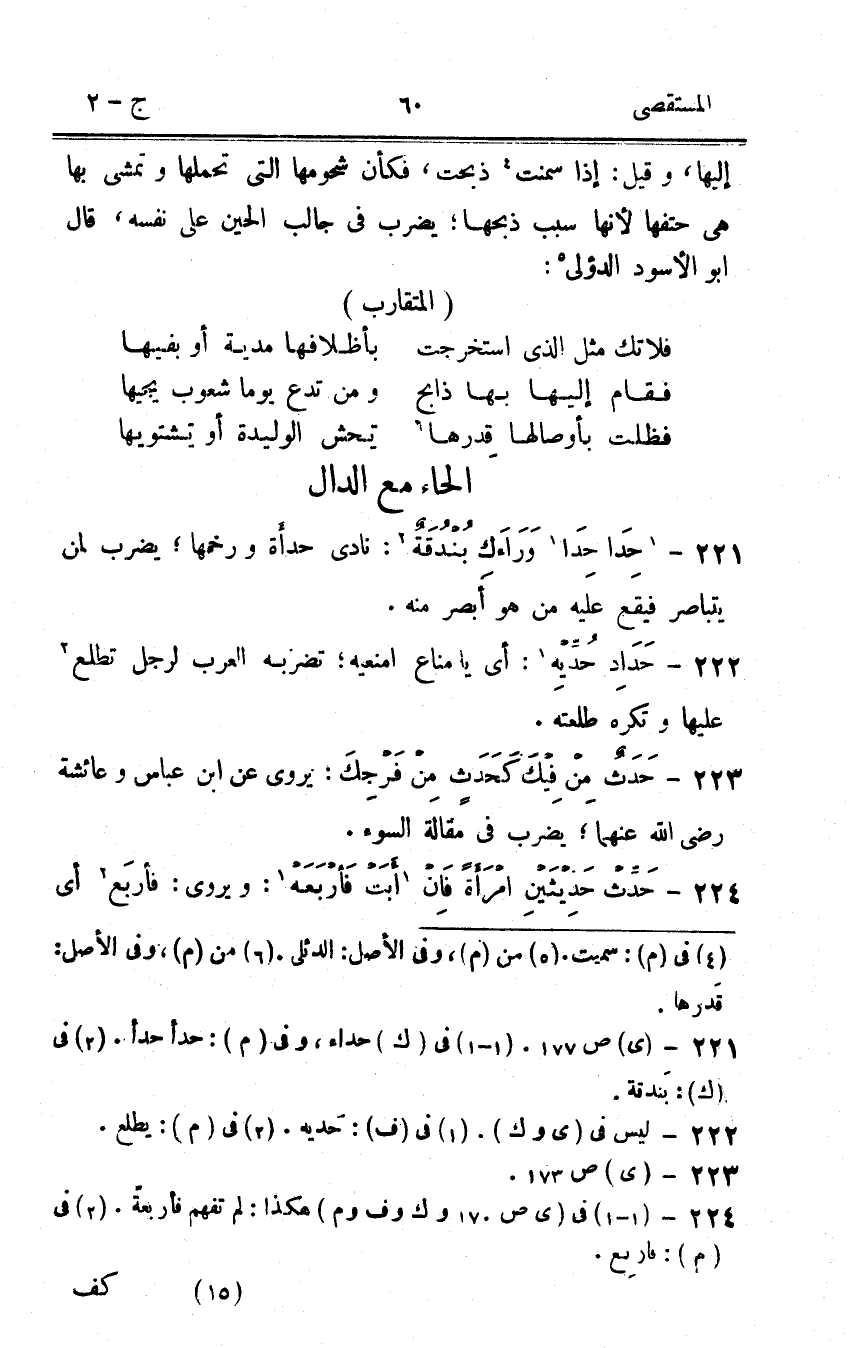 المستقصى ٦٠ ج – ٢
إليها، و قيل: إذا سمنت٤ ذبحت، فكأن شحومها التى تحملها و تمشى بها
هى حتفها لأنها سبب ذبحها؛ يضرب فى جالب الحين على نفسه، قال
ابو الأسود الدؤلى٥ :
( المتقارب )
فلاتك مثل الذى استخرجت بأظلافها مدية أو بفيها
فقام إليها بها ذابح و من تدع يوما شعوب يجيها
فظلت بأوصالها قِدرها٦ تحش الوليدة أو تشتويها
الحاء مع الدال
٢٢١ – ١حِدَا حِدَا١ وَرَاءَكِ بُنْدُقَةٌ٢ : نادى حدأة و رخمها ؛ يضرب لمن
يتباصر فيقع عليه من هو أبصر منه .
٢٢٢ – حَدَادِ حُدِّيْهِ١ : أى يا مناع امنعيه؛ تضربه العرب لرجل تطلع٢
عليها و تكره طلعته .
٢٢٣ – حَدَثٌ مِنْ فِيْكَ كَحَدَثٍ مِنْ فَرْجِكَ : يروى عن ابن عباس و عائشة
رضى الله عنهما ؛ يضرب فى مقالة السوء .
٢٢٤ – حَدِّثْ حَدِيْثَيْنِ امْرَأَةً فَانْ ١أَبَتْ فَأَرْبَعَهْ١ : و يروى : فأربَع٢ أى
(٤) فى (م) : سميت. (٥) من (م)، وفى الأصل: الدئلى . (٦) من (م)، وفى الأصل:
قَدرها .
٢٢١ – (ى) ص ١٧٧ . (١–١) فى ( ك ) حداء ، و فى ( م ) : حدأ حدأ . (٢) فى
(ك) : بَندقة .
٢٢٢ – ليس فى ( ى و ك ) . (١) فى (ف) : حَديه . (٢) فى ( م ) : يطلع .
٢٢٣ – ( ى ) ص ١٧٣ .
٢٢٤ – (١–١) فى ( ى ص ١٧٠ و ك و ف و م ) هكذا : لم تفهم فأربعةً . (٢) فى
( م ) : فاربِع .
(١٥) كف